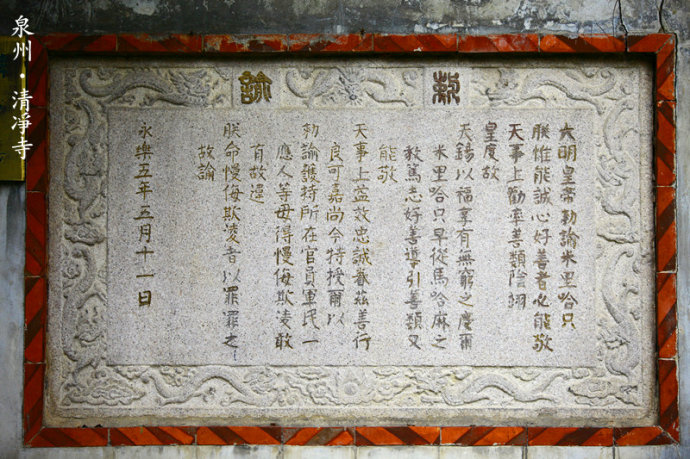 泉州·清淨寺
敕諭
大明皇帝勑諭米里哈只
朕惟能誠心好善者必能敬
天事上勸率善類陰翊
皇度故
天錫以福享有無窮之慶爾
米里哈只早從馬哈麻之
教篤志好善導引善類又
能敬
天事上益效忠誠眷茲善行
良可嘉尚今特授爾以
勑諭護持所在官員軍民一
應人等毋得慢侮欺凌敢
有故違
朕命慢侮欺凌者以罪罪之
故諭
永樂五年五月十一日